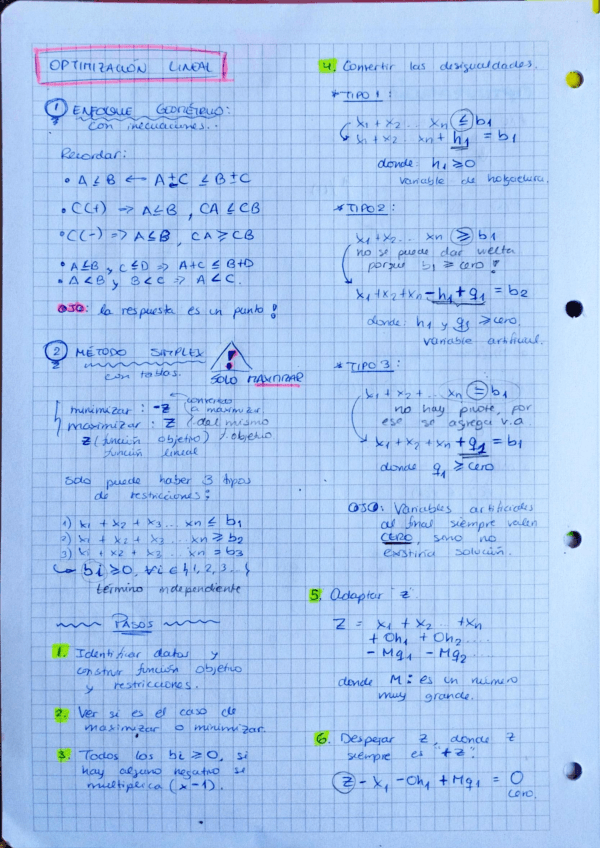 OPTIMIZACIÓN LINEAL
1 ENFOQUE GEOMÉTRICO:
con inecuaciones..
Recordar:
• A ≤ B ⟷ A ± C ≤ B ± C
• C(+) ⇒ A ≤ B, CA ≤ CB
• C(-) ⇒ A ≤ B, CA ≥ CB
• A ≤ B, C ≤ D ⇒ A+C ≤ B+D
• A < B y B < C ⇒ A < C.
OJO: la respuesta es un punto!
2 MÉTODO SIMPLEX
con tablas.
!
SOLO MAXIMIZAR
minimizar: -Z
convierto a maximizar
maximizar: Z
del mismo objetivo
Z (función objetivo)
función lineal
Solo puede haber 3 tipos
de restricciones:
1) x1 + x2 + x3 ... xn ≤ b1
2) x1 + x2 + x3 ... xn ≥ b2
3) x1 + x2 + x3 ... xn = b3
bi ≥ 0, ∀i ∈ {1, 2, 3 ...}
término independiente
PASOS
1. Identificar datos y
construir función objetivo
y restricciones.
2. Ver si es el caso de
maximizar o minimizar.
3. Todos los bi ≥ 0, si
hay alguno negativo se
multiplica (x -1).
4. Convertir las desigualdades.
* TIPO 1:
x1 + x2 ... xn ≤ b1
x1 + x2 ... xn + h1 = b1
donde: h1 ≥ 0
variable de holgadura.
* TIPO 2:
x1 + x2 ... xn ≥ b1
no se puede dar vuelta
porque b1 ≥ cero!
x1 + x2 + xn - h1 + g1 = b2
donde: h1 y g1 ≥ cero.
variable artificial.
* TIPO 3:
x1 + x2 + ... xn = b1
no hay pivote, por
eso se agrega v.a.
x1 + x2 + xn + g1 = b1
donde g1 ≥ cero
OJO: Variables artificiales
al final siempre valen
CERO, sino no
existiría solución.
5. Adaptar "Z".
Z = x1 + x2 .. + xn
+ 0h1 + 0h2 ....
- Mg1 - Mg2 ...
donde M: es un número
muy grande.
6. Despejar Z, donde Z
siempre es "+Z".
Z - x1 - 0h1 + Mg1 = 0
cero.